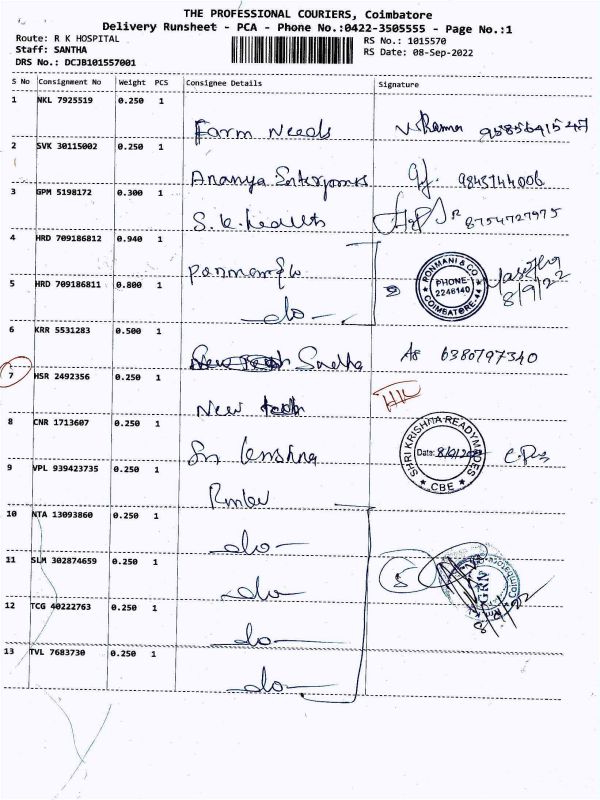 THE PROFESSIONAL COURIERS, Coimbatore
Delivery Runsheet - PCA - Phone No.:0422-3505555 - Page No.:1
Route: R K HOSPITAL
Staff: SANTHA
DRS No.: DCJB101557001
RS No.: 1015570
RS Date: 08-Sep-2022
S No Consignment No Weight PCS Consignee Details Signature
1 NKL 7925519 0.250 1
Farm Needs 9585641547
2 SVK 30115002 0.250 1
Ananya Enterprises 9843744006
3 GPM 5198172 0.300 1
S.K. Health 8754727975
4 HRD 709186812 0.940 1
RONMANI & CO
PHONE
2246140
COIMBATORE-44
8/9/22
5 HRD 709186811 0.800 1
-do-
6 KRR 5531283 0.500 1
Sneha 6380797340
7 HSR 2492356 0.250 1
New
8 CNR 1713607 0.250 1
Sri Krishna
SHRI KRISHNA READYMADES
Date:
CBE
9 VPL 939423735 0.250 1
10 NTA 13093860 0.250 1
-do-
11 SLM 302874659 0.250 1
-do-
5
GRN
12 TCG 40222763 0.250 1
-do-
13 TVL 7683730 0.250 1
-do-